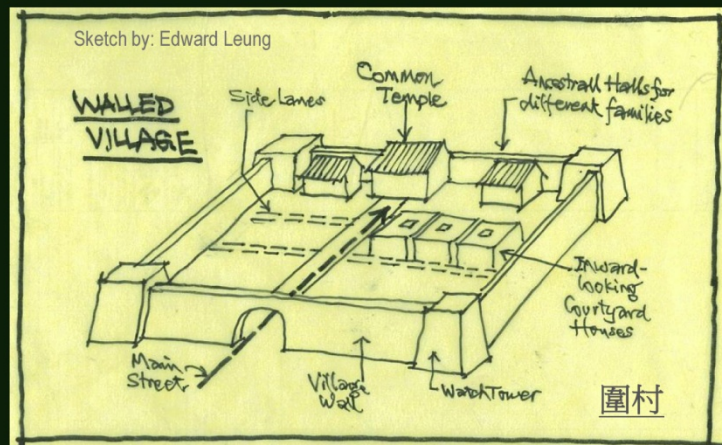 Sketch by: Edward Leung
WALLED
VILLAGE
Side Lanes
Common
Temple
Ancestrall Halls for
different families
Inward-
looking
Courtyard
Houses
Main
Street
Village
Wall
WatchTower
圍村